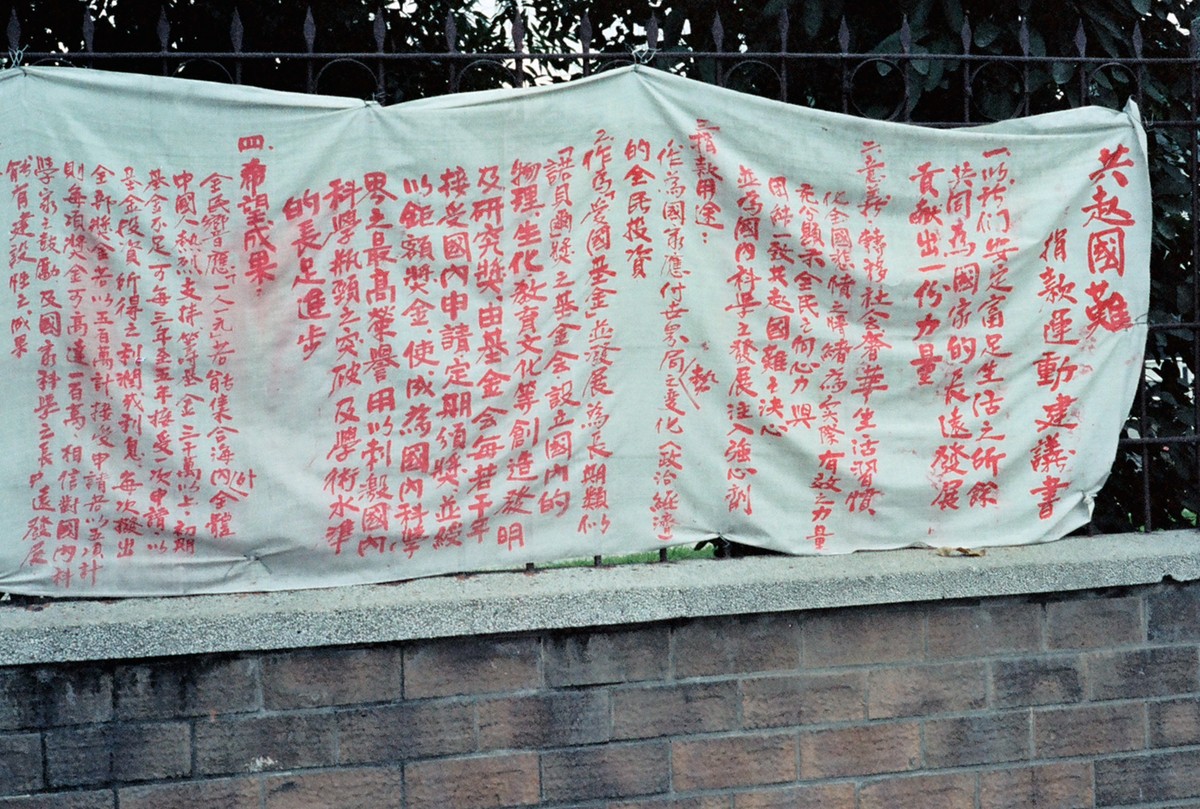 共赴國難
捐款運動建議書
一、以我們安定富足生活之所餘
共同為國家的長遠發展
貢獻出一份力量
二、意義：轉移社會奢華生活習慣
化全國悲憤之情緒為實際有效之力量
充分顯示全民之向心力與
團結一致共赴國難之決心
並為國內科學之發展注入強心劑
三、捐款用途：
作為國家應付世界局勢之變化（政治經濟）
的全民投資
2.作為「愛國基金」並發展為長期類似
「諾貝爾獎」之基金會設立國內的
物理、生化、教育文化等創造發明
及研究獎、由基金會每若干年
接受國內申請定期頒獎並綬
以鉅額獎金、使成為國內科學
界之最高榮譽用以刺激國內
科學瓶頸之突破及學術水準
的長足進步
四、希望成果：
全民響應一人一元若能集合海內外全體
中國人熱烈支持、籌基金二千萬以上、初期
基金不足可每三年至五年接受一次申請、以
基金投資所得之利潤或利息、每次撥出
全部獎金若以五百萬計接受申請者以五項計
則每項獎金可高達一百萬、相信對國內科
學家之鼓勵及國家科學之長遠發展
能有建設性之成果